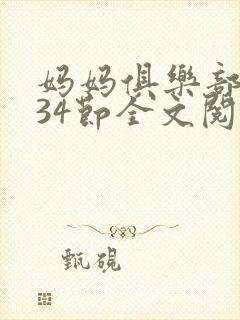 妈妈俱樂部
34節全文閱
甄硯